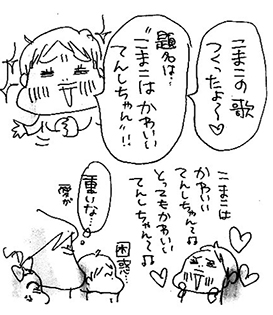 こまこの歌
つくったよ〜♡
題名は…
“こまこはかわいい
てんしちゃん”!!
こまこは
かわいい
てんしちゃん〜♫
とってもかわいい
てんしちゃん〜♫
困惑…
重いな…
愛が